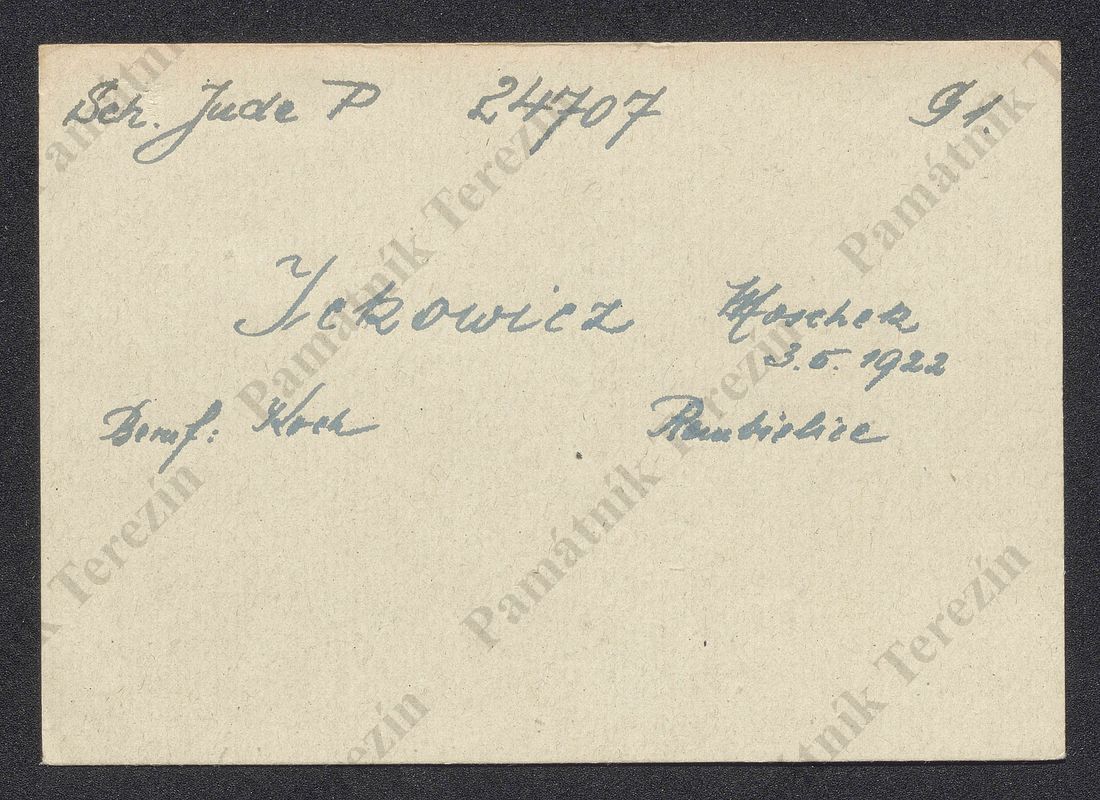 Sch. Jude P 24707 91.
Ickowicz Moschek
3.5.1922
Beruf: Koch Rembielice
Památník Terezín